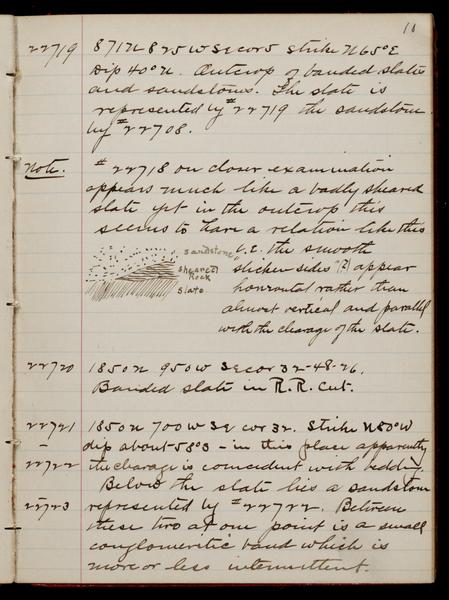 10
22719 871 N 825 W Se cor 5 Strike N 65° E
Dip 40° N. Outcrop of banded slates
and sandstones. The slate is
represented by #22719 the sandstone
by #22708.
Note. #22718 on closer examination
appears much like a badly sheared
slate yet in the outcrop this
seems to have a relation like this
sandstone
sheared
Rock
Slate
i.e. the smooth
slicken sides "(?) appear
horizontal rather than
almost vertical and parallel
with the cleavage of the slate.
22720 1850 N 950 W Se cor 32-48-26.
Banded slate in R.R. cut.
22721 1850 N 700 W Se cor 32. Strike N 80° W
dip about 58° S - in this place apparently
22722 the cleavage is coincident with bedding.
Below the slate lies a sandstone
22723 represented by #22722. Between
these two at one point is a small
conglomeritic band which is
more or less intermittent.